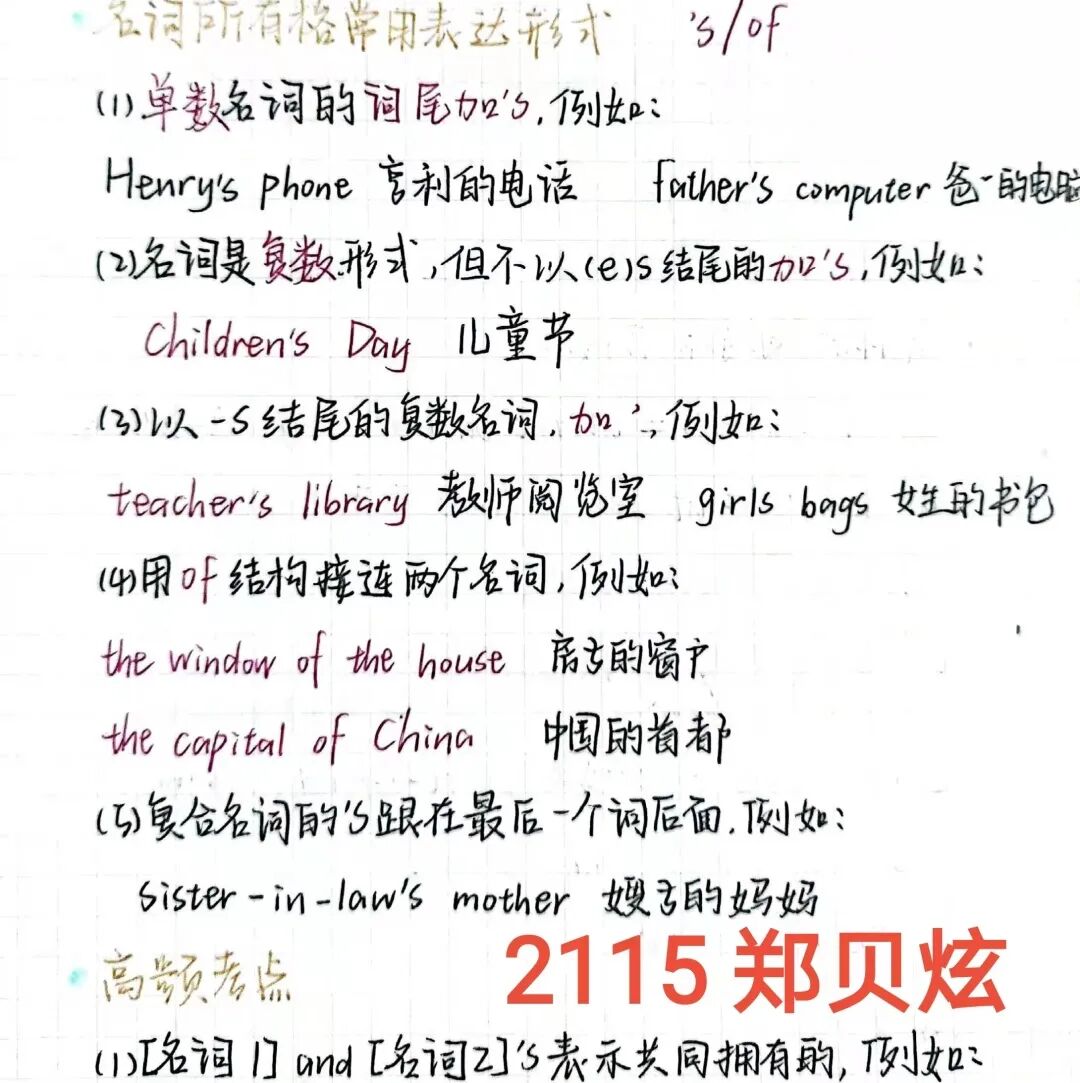 名词所有格常用表达形式 's/of
(1)单数名词的词尾加's,例如:
Henry's phone 亨利的电话 father's computer 爸爸的电脑
(2)名词是复数形式,但不以(e)s结尾的加's,例如:
Children's Day 儿童节
(3)以-s结尾的复数名词,加',例如:
teacher's library 教师阅览室 girls bags 女生的书包
(4)用of结构接连两个名词,例如:
the window of the house 房子的窗户
the capital of China 中国的首都
(5)复合名词的's跟在最后一个词后面,例如:
sister-in-law's mother 嫂子的妈妈
2115 郑贝炫
高频考点
(1)[名词1] and [名词2]'s表示共同拥有的,例如: